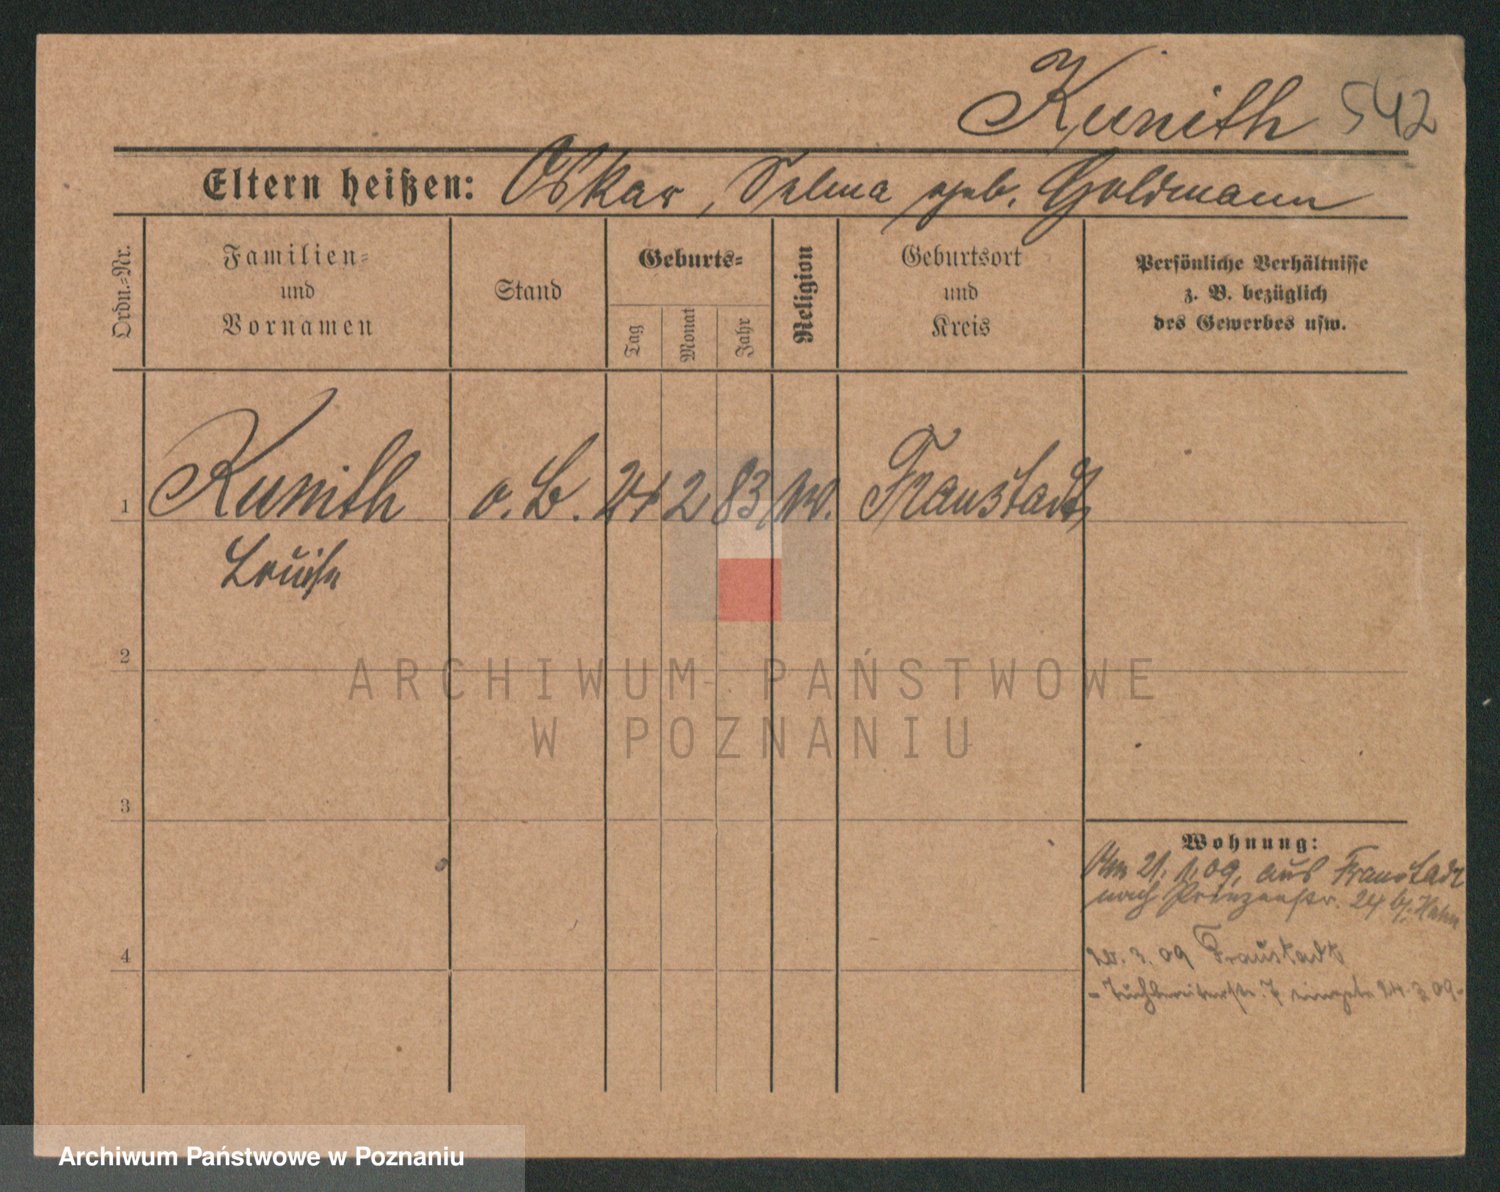 Kunith 542
Eltern heißen: Oskar, Selma geb. Goldmann
Ordn.-Nr.
Familien-
und
Vornamen
Stand
Geburts-
Tag
Monat
Jahr
Religion
Geburtsort
und
Kreis
Persönliche Verhältnisse
z. B. bezüglich
des Gewerbes usw.
1 Kunith o. B. 24 2 83 Fraustadt
Louise
2
ARCHIWUM PAŃSTWOWE
W POZNANIU
3
Wohnung:
21. 1. 09. aus Fraustadt
nach Prinzenstr. 24 b/. Hahn
4
3. 09 Fraustadt
- Tuchbereiterstr. 7 24. 3 09 -
Archiwum Państwowe w Poznaniu